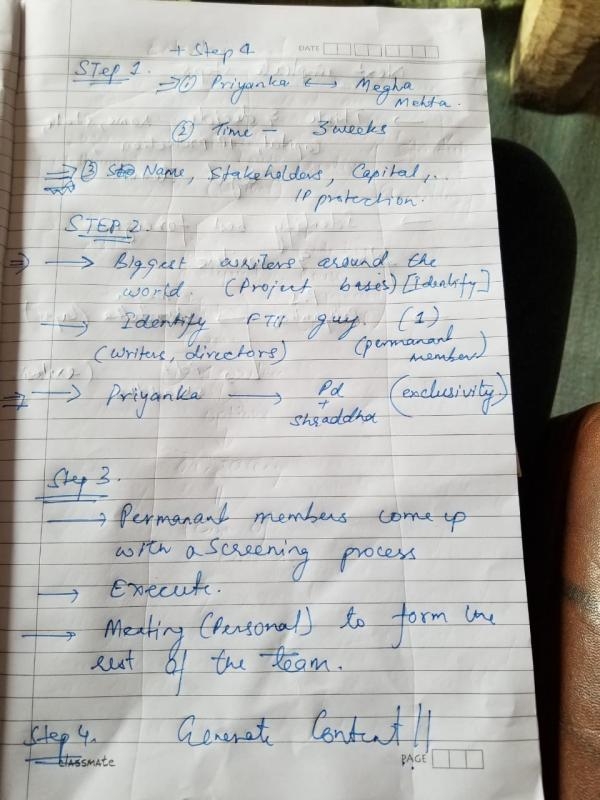 + Step 4
DATE
STEP 1.
⇒ ① Priyanka ⟷ Megha
Mehta.
② Time — 3 weeks
⇒ ③ Name, Stakeholders, Capital,..
IP protection.
STEP 2.
⇒ → Biggest writers around the
world. (Project bases) [Identify]
→ Identify FTII guy. (1)
(writers, directors) (permanant
member)
⇒ → Priyanka → Pd
+
Shraddha
(exclusivity)
Step 3.
→ Permanant members come up
with a Screening process
→ Execute.
→ Meeting (Personal) to form the
rest of the team.
Step 4. Generate Content!!
CLASSMATE PAGE